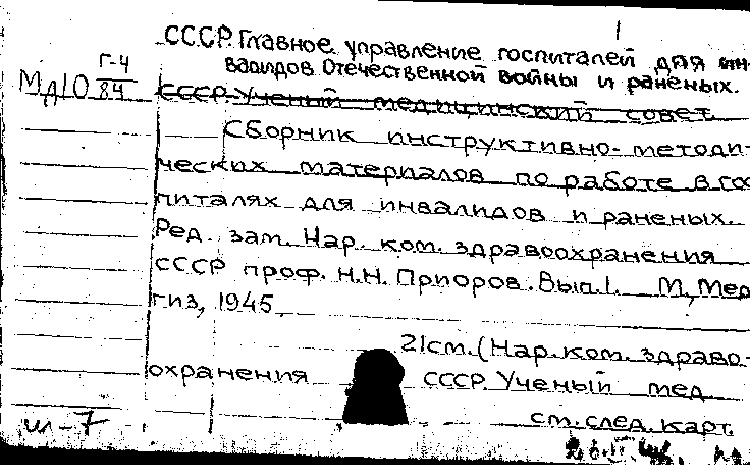 СССР. Главное управление госпиталей для ин-
валидов Отечественной войны и раненых.
МД10 Г-4
84
СССР. Ученый медицинский совет
Сборник инструктивно-методи-
ческих материалов по работе в гос
питалях для инвалидов и раненых.
Ред. зам. Нар. ком. здравоохранения
СССР проф. Н.Н. Приоров. Вып. 1. М., Мед
гиз, 1945
21 см. (Нар. ком. здраво-
охранения СССР. Ученый мед
см. след. карт.
ш-7